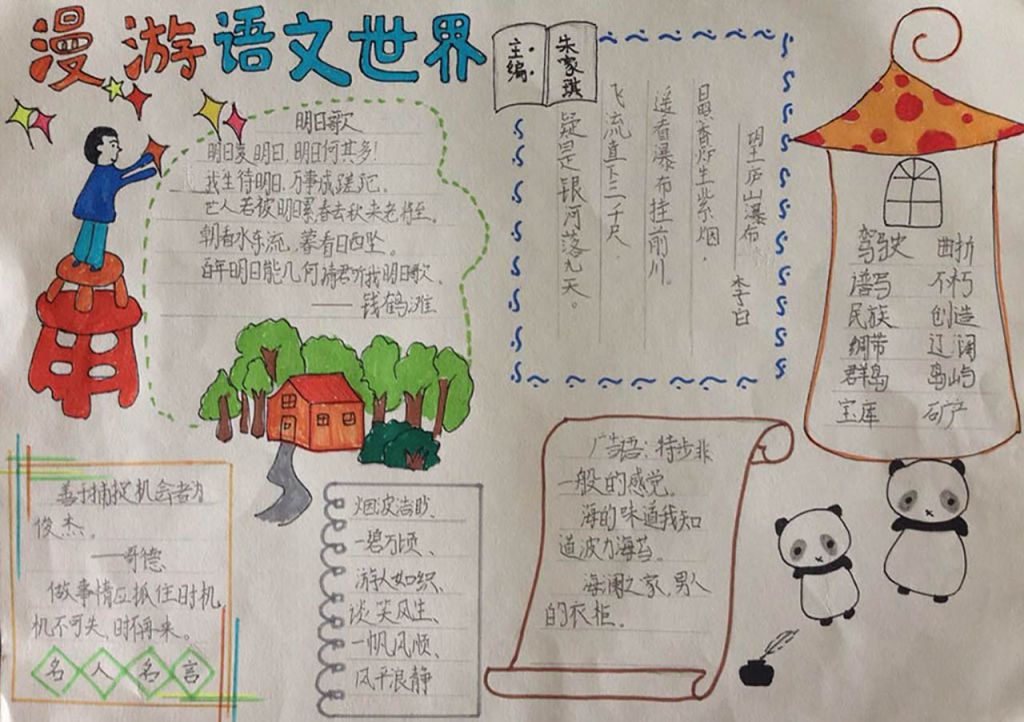 漫游语文世界
主编：
朱家琪
明日歌
明日复明日，明日何其多！
我生待明日，万事成蹉跎。
世人若被明日累，春去秋来老将至。
朝看水东流，暮看日西坠。
百年明日能几何？请君听我明日歌。
——钱鹤滩
望庐山瀑布
李白
日照香炉生紫烟，
遥看瀑布挂前川。
飞流直下三千尺，
疑是银河落九天。
驾驶 曲折
谱写 不朽
民族 创造
绸带 辽阔
群岛 岛屿
宝库 矿产
善于捕捉机会者为
俊杰。
——哥德
做事情应抓住时机，
机不可失，时不再来。
名人名言
烟波浩渺、
一碧万顷、
游人如织、
谈笑风生、
一帆风顺、
风平浪静
广告语：特步非
一般的感觉。
海的味道我知
道波力海苔。
海澜之家，男人
的衣柜。